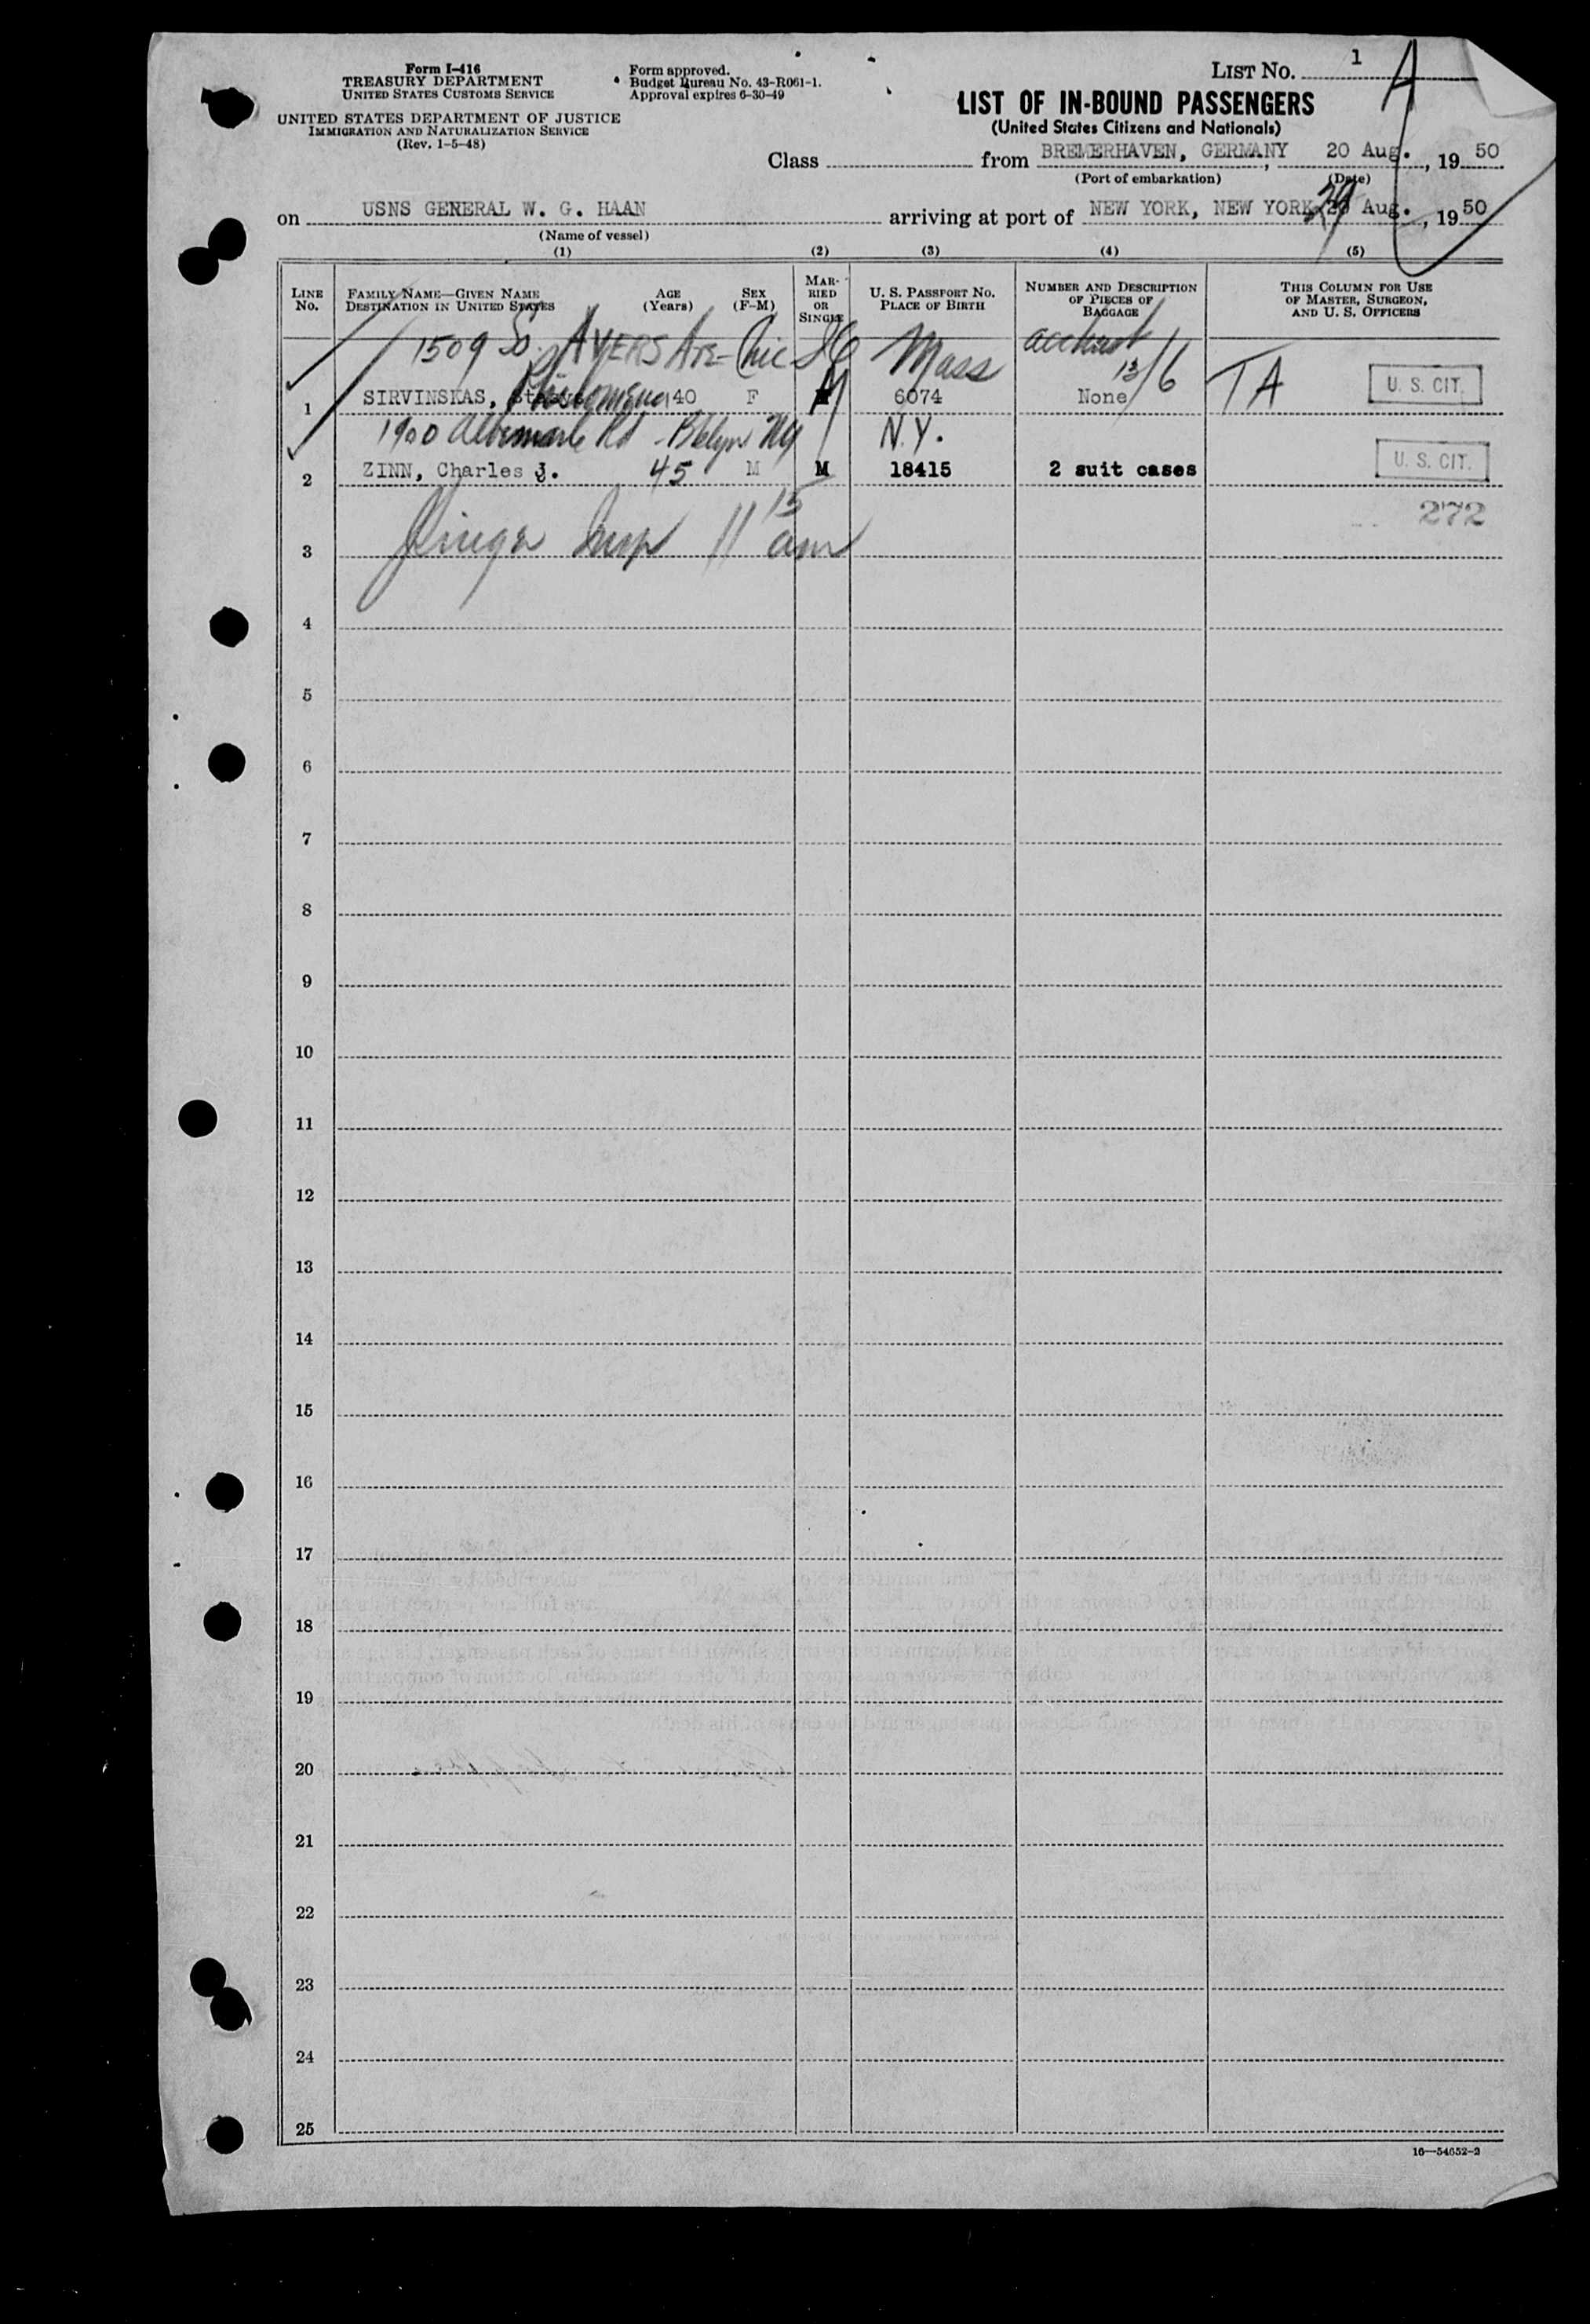 Form I-416
TREASURY DEPARTMENT
UNITED STATES CUSTOMS SERVICE
UNITED STATES DEPARTMENT OF JUSTICE
IMMIGRATION AND NATURALIZATION SERVICE
(Rev. 1-5-48)
Form approved.
Budget Bureau No. 43-R061-1.
Approval expires 6-30-49
LIST NO. 1
A
LIST OF IN-BOUND PASSENGERS
(United States Citizens and Nationals)
Class from BREMERHAVEN, GERMANY, 20 Aug., 1950
(Port of embarkation) (Date)
on USNS GENERAL W. G. HAAN arriving at port of NEW YORK, NEW YORK 29 Aug., 1950
(Name of vessel)
(1) (2) (3) (4) (5)
LINE NO.
FAMILY NAME—GIVEN NAME
DESTINATION IN UNITED STATES
AGE (Years)
SEX (F-M)
MARRIED OR SINGLE
U. S. PASSPORT NO.
PLACE OF BIRTH
NUMBER AND DESCRIPTION OF PIECES OF BAGGAGE
THIS COLUMN FOR USE OF MASTER, SURGEON, AND U. S. OFFICERS
1509 So. AYERS Ave - Chic Mass
1 SIRVINSKAS, Philomena 40 F M 6074 None 13/6 TA U. S. CIT.
1900 Albemarle Rd - Bklyn NY N.Y.
2 ZINN, Charles J. 45 M M 18415 2 suit cases U. S. CIT.
272
3 Insp 11 15 am
4
5
6
7
8
9
10
11
12
13
14
15
16
17
18
19
20
21
22
23
24
25
16—54652-2